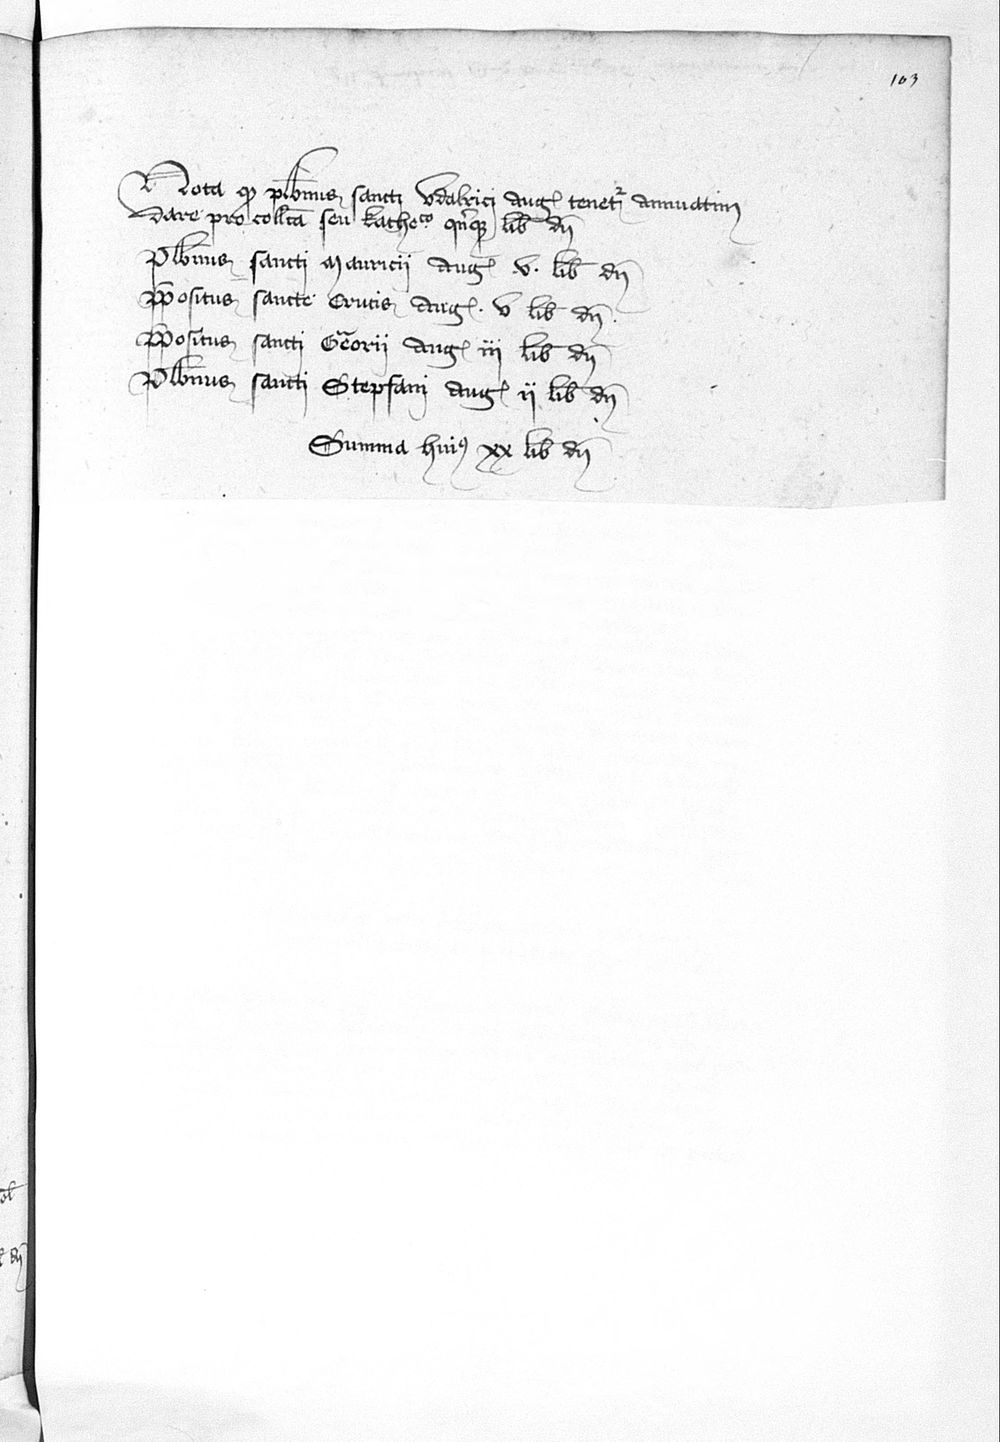 103
Nota qd plbnus sancti Vdalrici Aug tenetr annuatim
dare pro collcta seu kathedco qnqz lib dn
Plbnus sancti Mauricii Aug .v. lib dn
Ppositus sancte Crucis Aug. v lib dn.
Ppositus sancti Georii Aug iij lib dn
Plbnus sancti Stepfani Aug ij lib dn
Summa huius xx lib dn